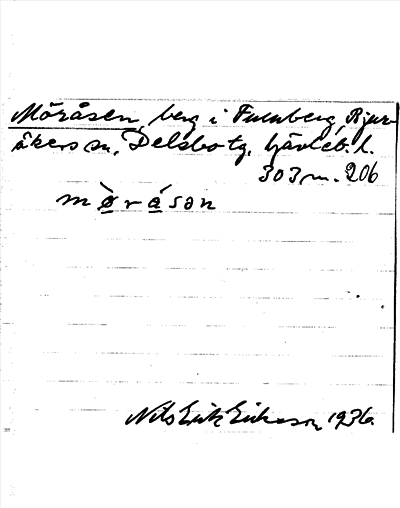 Möråsen berg i Furuberg, Bjur-
åkers sn, Delsbo tg, Gävleb. l.
303 m. 206
mø̀råsən
Nils Erik Eriksson 1936.